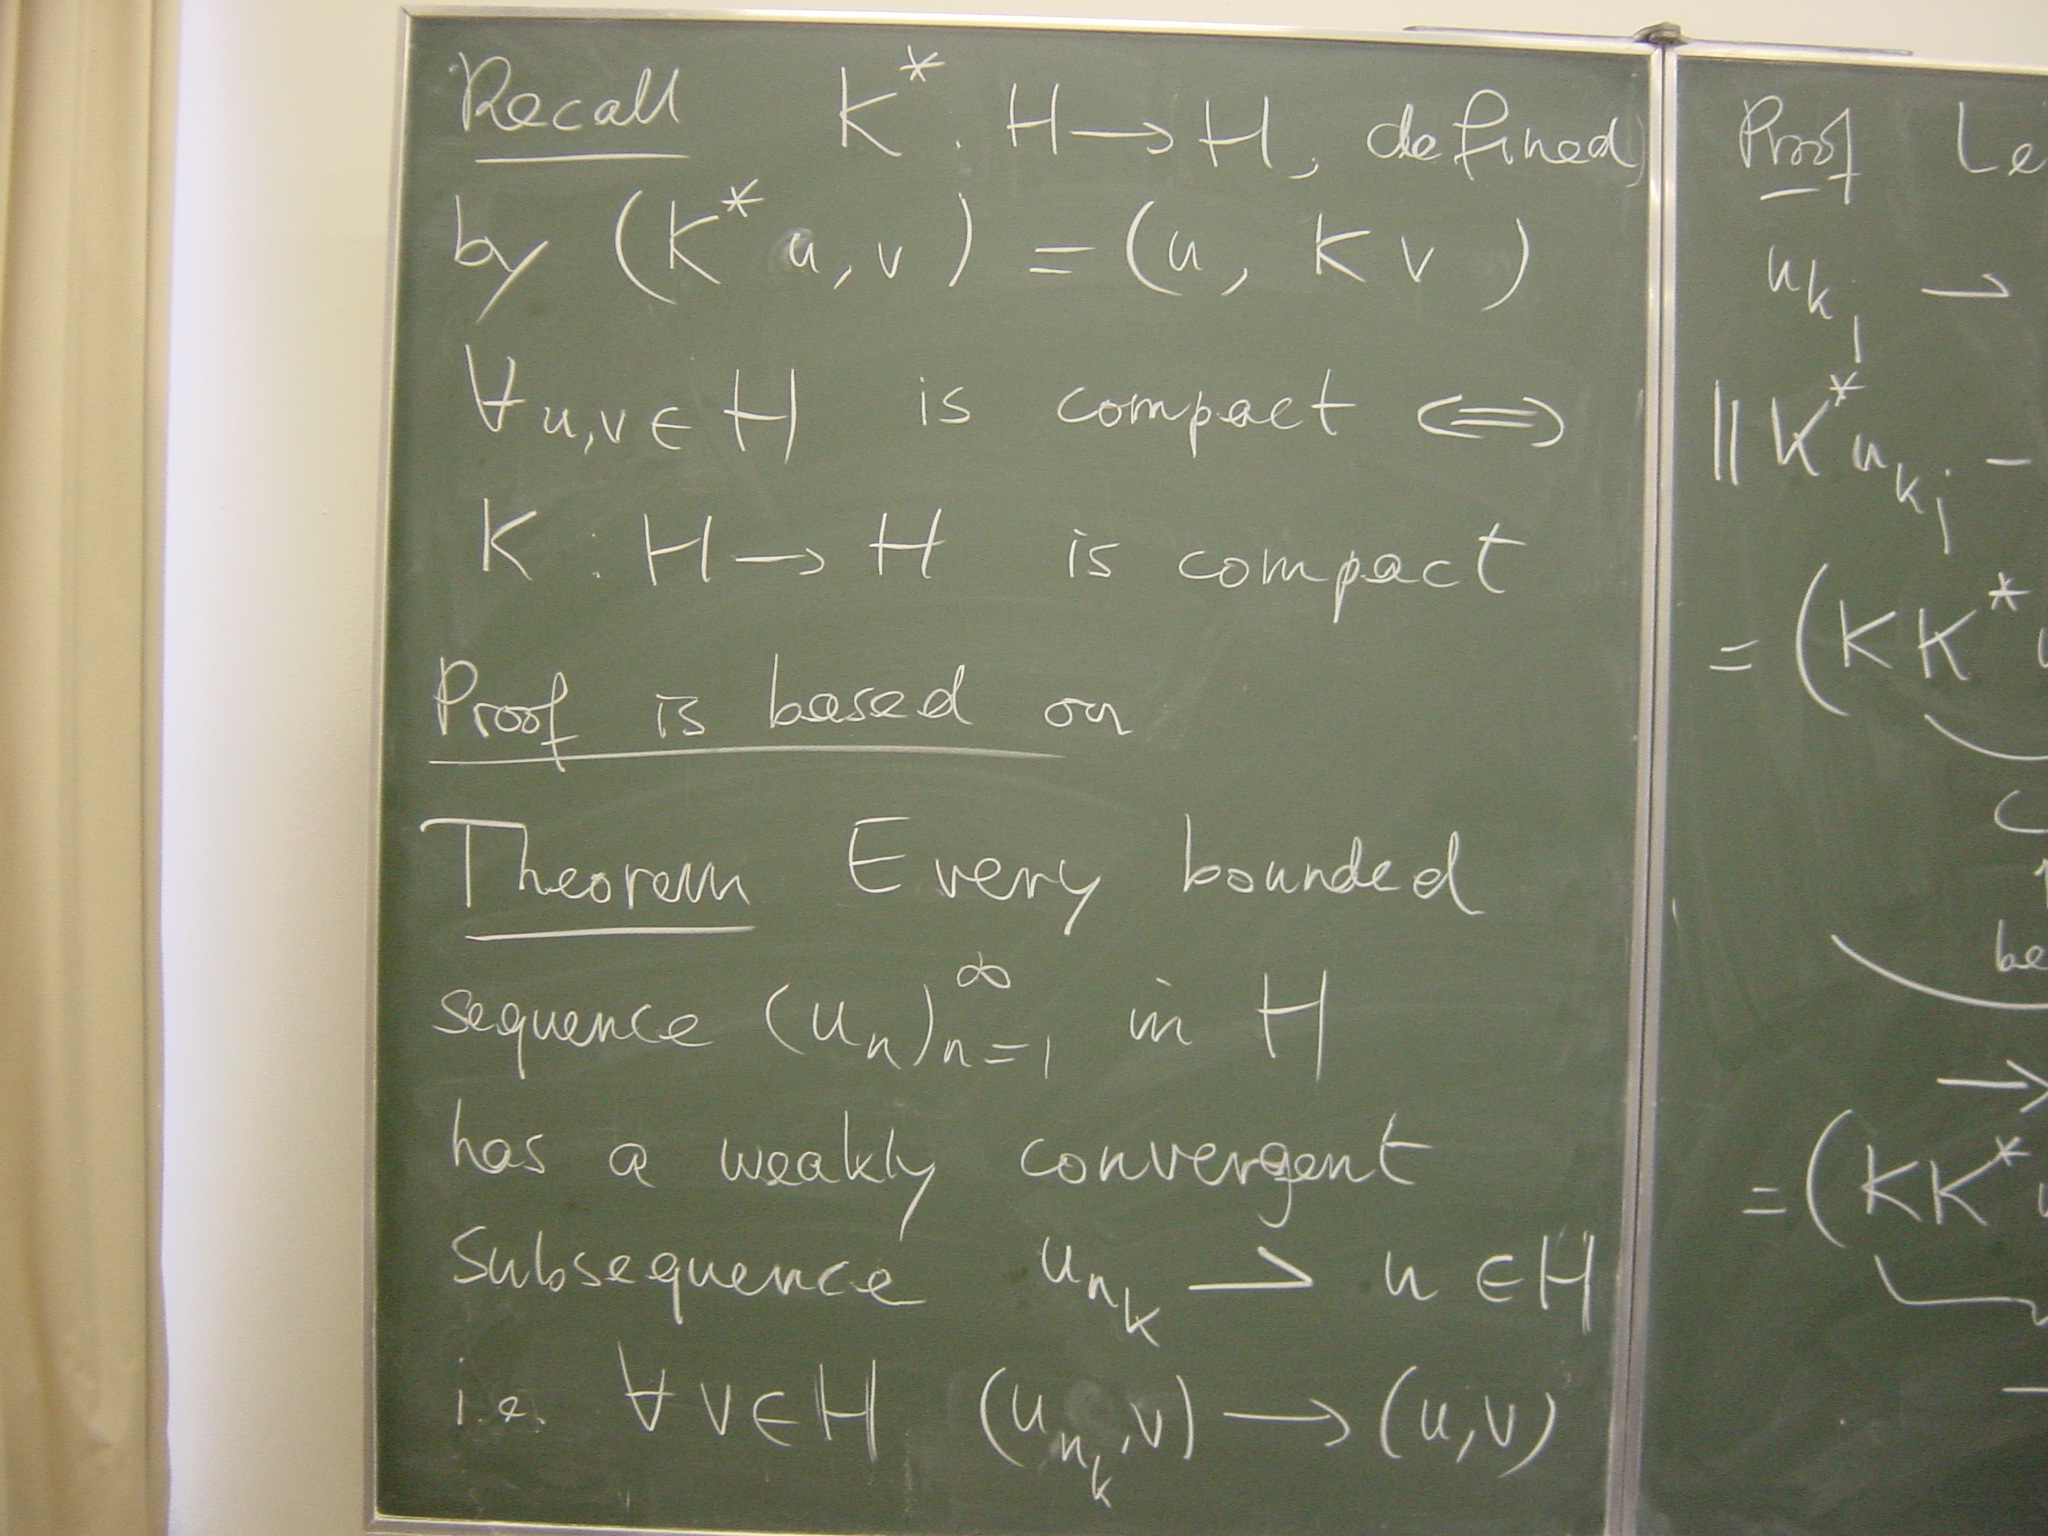 Recall K* : H → H, defined
by (K* u, v) = (u, K v)
∀ u,v ∈ H is compact ⇔
K : H → H is compact
Proof is based on
Theorem Every bounded
sequence (u_n)_{n=1}^∞ in H
has a weakly convergent
subsequence u_{n_k} ⇀ u ∈ H
i.e. ∀ v ∈ H (u_{n_k}, v) → (u,v)
Proof Le
u_{k_j} ⇀
||K* u_{k_j} -
= (KK*
be
→
= (KK*